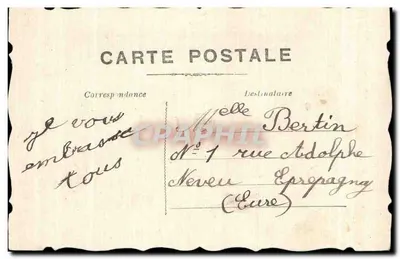 CARTE POSTALE
Correspondance
Destinataire
je vous
embrasse
tous
Melle Bertin
No 1 rue Adolphe
Neveu Eprepagny
(Eure)
CPAPHIL